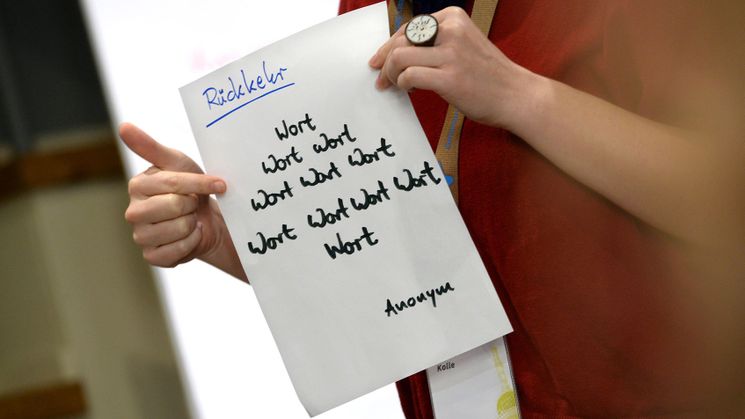 Rückkehr
Wort
Wort Wort
Wort Wort Wort
Wort Wort Wort Wort
Wort
Anonym
Kolle